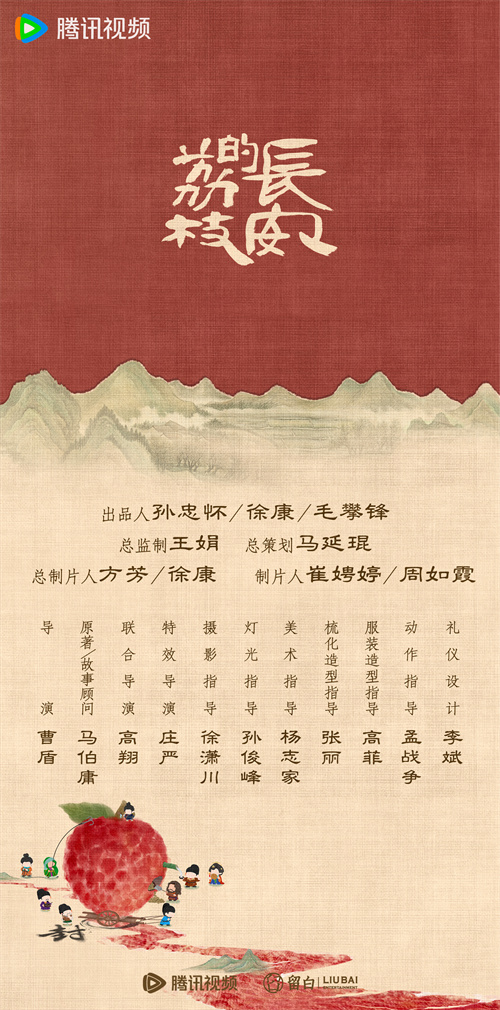 腾讯视频
長安的荔枝
出品人 孙忠怀/徐康/毛攀锋
总监制 王娟 总策划 马延琨
总制片人 方芳/徐康 制片人 崔娉婷/周如霞
导演 曹盾
原著/故事顾问 马伯庸
联合导演 高翔
特效导演 庄严
摄影指导 徐潇川
灯光指导 孙俊峰
美术指导 杨志家
梳化造型指导 张丽
服装造型指导 高菲
动作指导 孟战争
礼仪设计 李斌
封
腾讯视频 留白 LIUBAI
ENTERTAINMENT